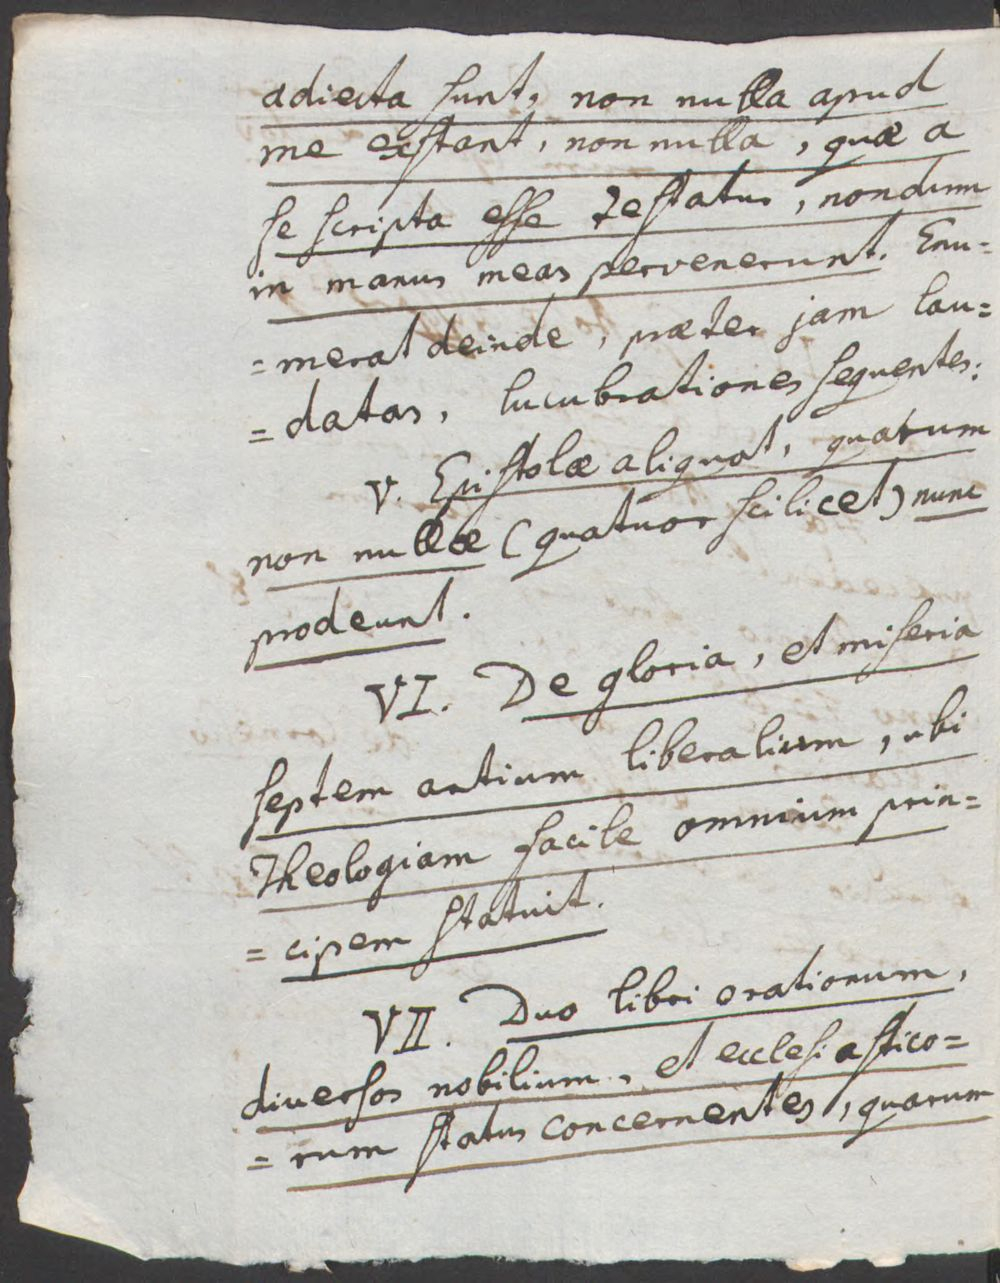 adiecta sunt, non nulla apud
me exstant, non nulla, quæ a
se scripta esse testatus, nondum
in manus meas pervenerunt. Enu=
=merat deinde, præter jam lau=
=datas, lucubrationes sequentes:
V. Epistolæ aliquot, quarum
non nullæ (quatuor scilicet) nunc
prodeunt.
VI. De gloria, et miseria
septem artium liberalium, ubi
Theologiam facile omnium prin=
=cipem statuit.
VII. Duo libri orationum,
diversos nobilium, et ecclesiastico=
=rum status concernentes, quarum